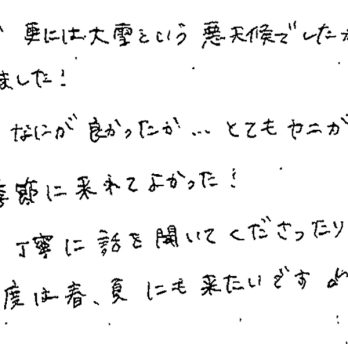 更には大雪という悪天候でしたが
ました!
なにが良かったか… とてもヤニが
季節に来れてよかった!
丁寧に話を聞いてくださったり
度は春、夏にも来たいです